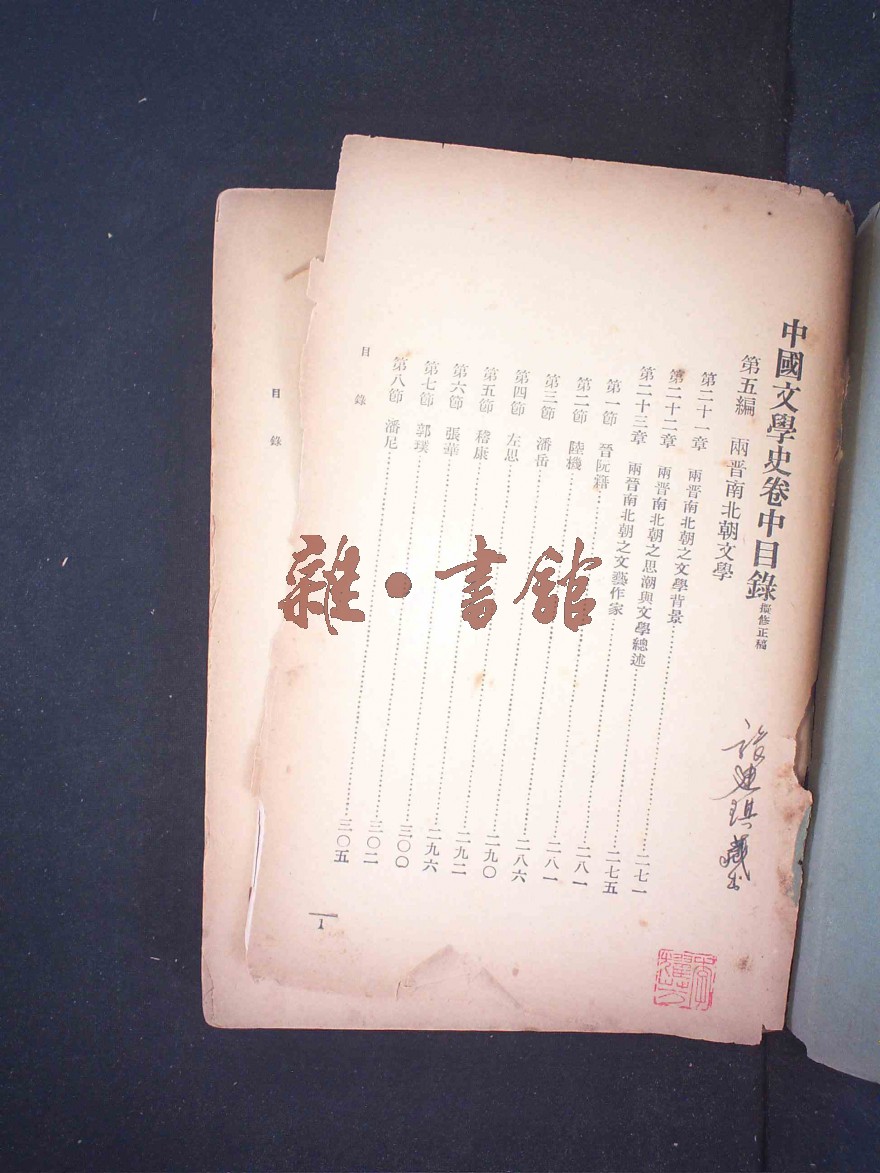 中國文學史卷中目錄 擬修正稿
第五編 兩晋南北朝文學
第二十一章 兩晋南北朝之文學背景……二七一
第二十二章 兩晋南北朝之思潮與文學總述……二七五
第二十三章 兩晉南北朝之文藝作家……二八一
第一節 晉阮籍……二八一
第二節 陸機……二八六
第三節 潘岳……二九〇
第四節 左思……二九二
第五節 嵇康……二九六
第六節 張華……三〇〇
第七節 郭璞……三〇二
第八節 潘尼……三〇五
目錄
1
迪琪藏书
目錄
雜·書館